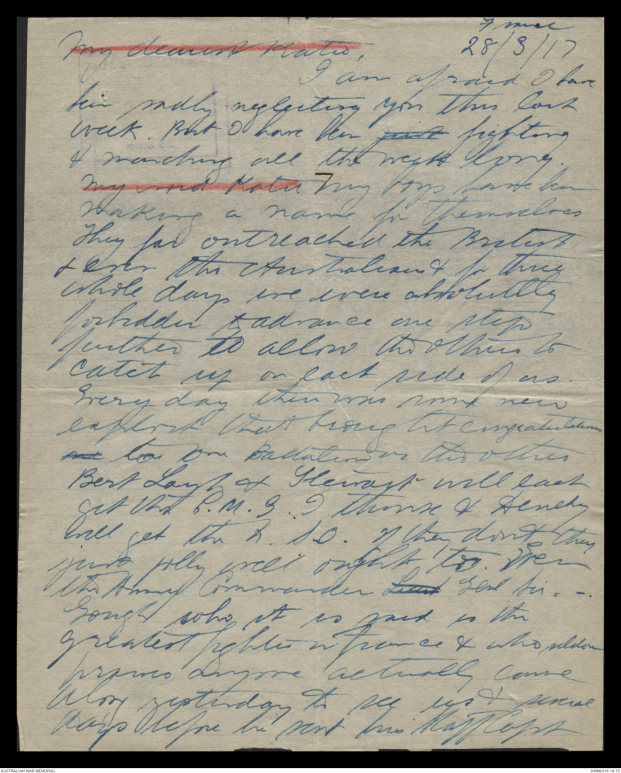 France
28/3/17
My dearest Katie,
I am afraid I have
been sadly neglecting you this last
week. But I have been just fighting
& marching all the night long.
My word Katie my boys have been
making a name for themselves
They far outreached the British
& even the Australians & for three
whole days we were absolutely
forbidden to advance one step
further to allow the others to
catch up on each side of us.
Every day there was some new
exploit that brought congratulations
to our Battalion or the other
Bert Layh & Stewart will each
get the D.M.G. I think &
will get the D.S.O. If they don't they
just jolly well ought too. Even
the Army Commander Genl Sir. -.
Gough who it is said is the
greatest fighter in France & who seldom
praises anyone actually came
along yesterday to see us & several
days before he sent his Staff Capt
AUSTRALIAN WAR MEMORIAL